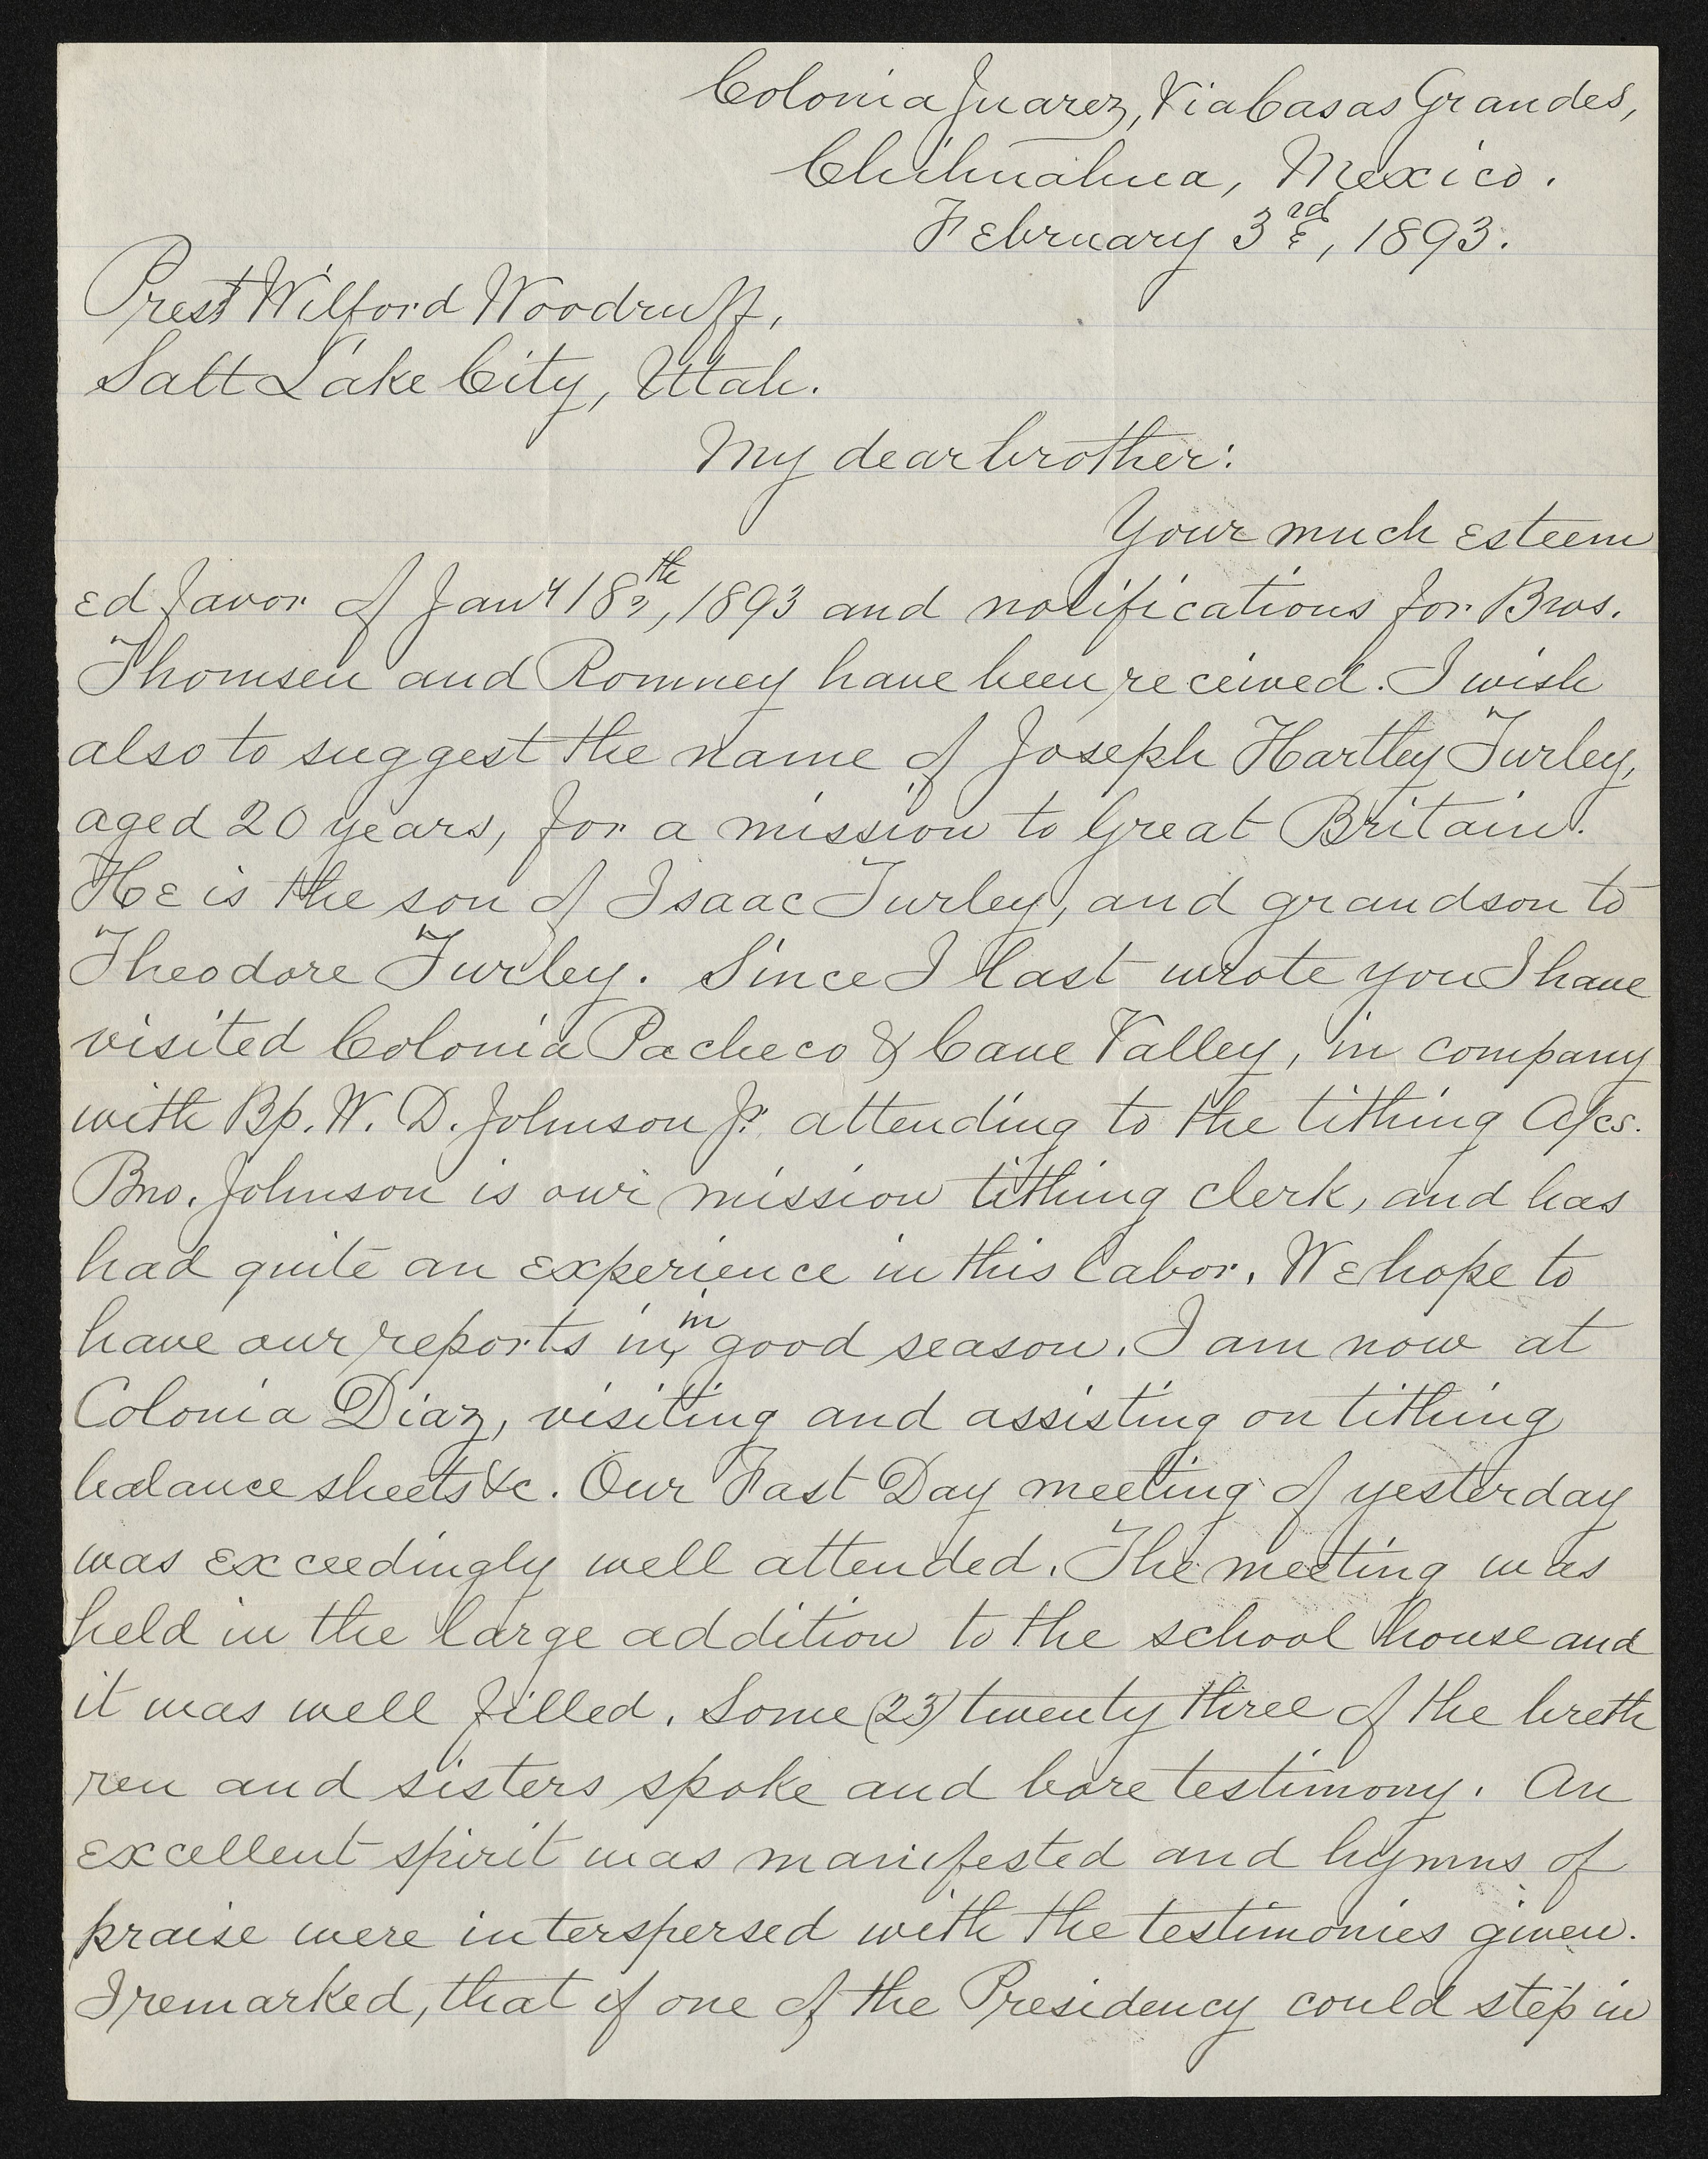 Colonia Juarez, Via Casas Grandes,
Chihuahua, Mexico.
February 3rd, 1893.
Prest Wilford Woodruff,
Salt Lake City, Utah.
My dear brother:
Your much esteem
ed favor of Jany 18th, 1893 and notifications for Bros.
Thomsen and Romney have been received. I wish
also to suggest the name of Joseph Hartley Turley,
aged 20 years, for a mission to Great Britain.
He is the son of Isaac Turley, and grandson to
Theodore Turley. Since I last wrote you I have
visited Colonia Pacheco & Cave Valley, in company
with Bp. W. D. Johnson Jr. attending to the tithing A/cs.
Bro. Johnson is our mission tithing clerk, and has
had quite an experience in this labor. We hope to
have our reports in, in good season. I am now at
Colonia Diaz, visiting and assisting on tithing
balance sheets &c. Our Fast Day meeting of yesterday
was exceedingly well attended. The meeting was
held in the large addition to the school house and
it was well filled. Some (23) twenty three of the breth
ren and sisters spoke and bore testimony. An
excellent spirit was manifested and hymns of
praise were interspersed with the testimonies given.
I remarked, that if one of the Presidency could step in